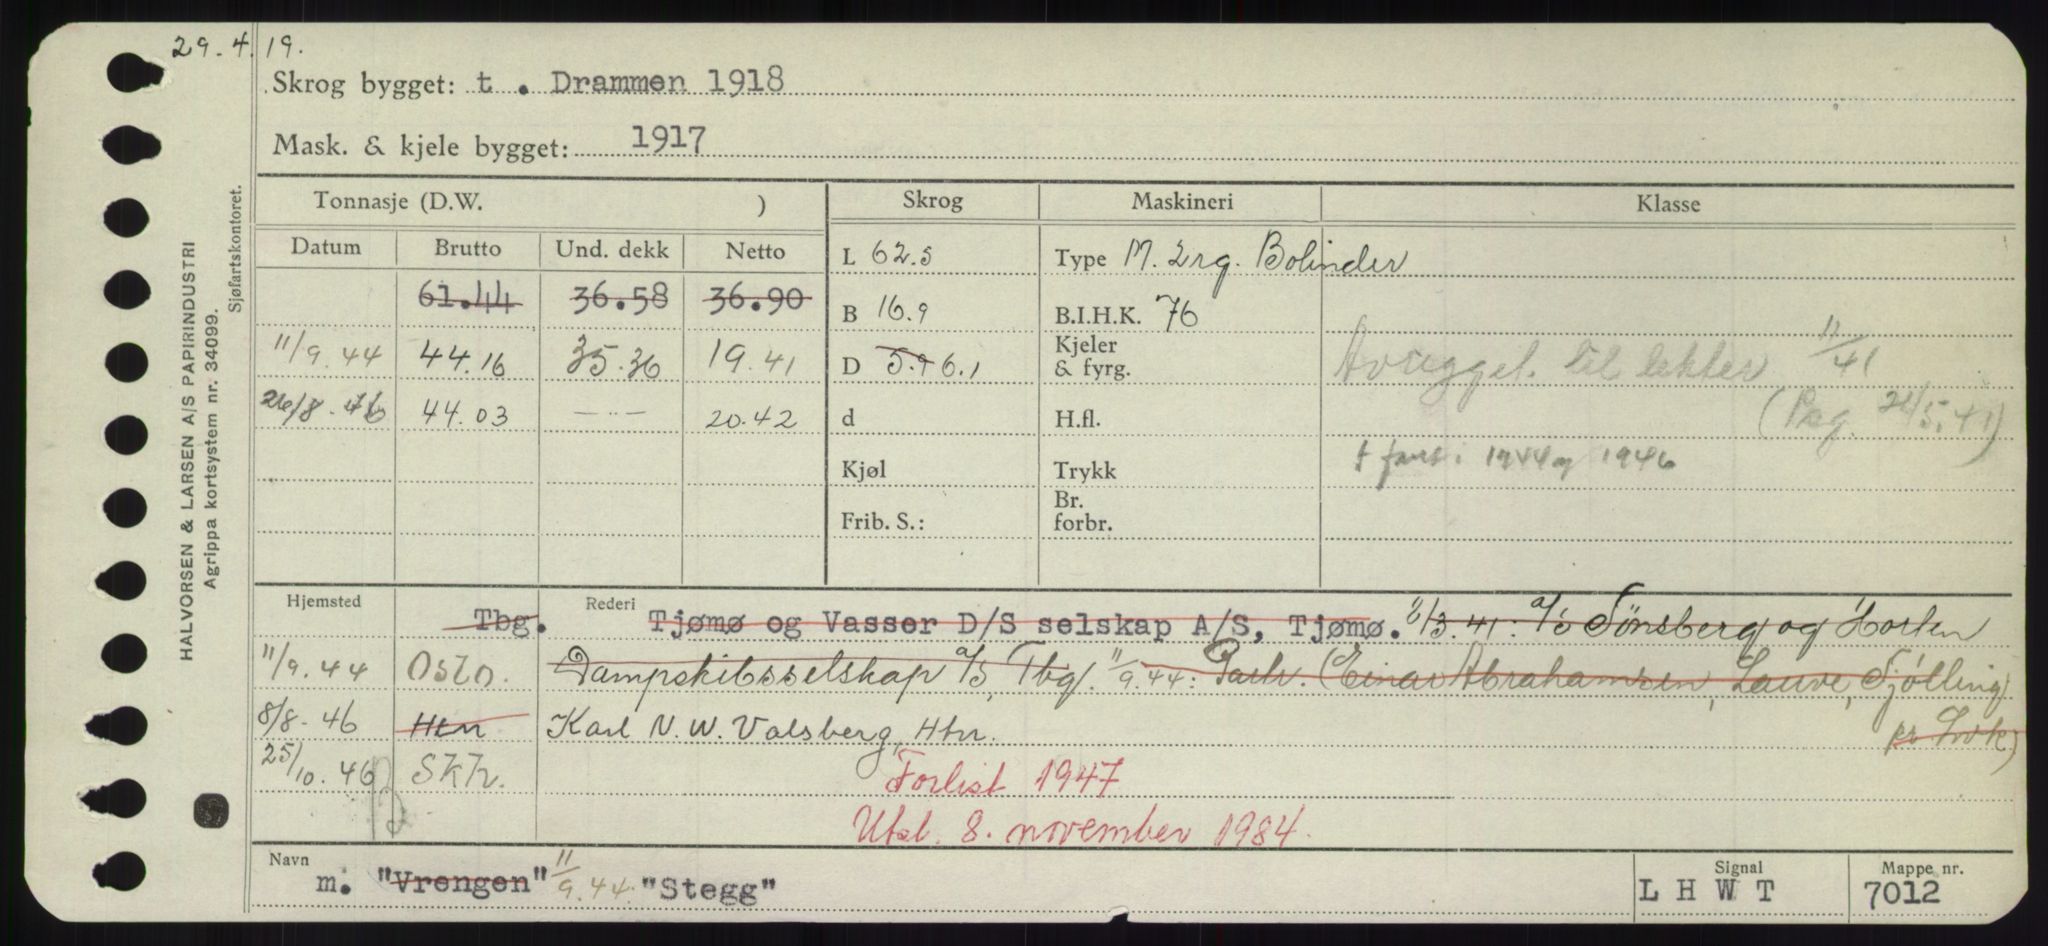 29.4.19.
Skrog bygget: t . Drammen 1918
Mask. & kjele bygget: 1917
HALVORSEN & LARSEN A/S PAPIRINDUSTRI
Agrippa kortsystem nr. 34099.
Sjøfartskontoret.
Tonnasje (D.W. ) Skrog Maskineri Klasse
Datum Brutto Und. dekk Netto
L 62.5 Type M. 2rg. Bolinder
61.44 36.58 36.90
B 16.9 B.I.H.K. 76
11/9.44 44.16 35.36 19.41
D 5.9 6.1 Kjeler & fyrg.
til lekter 11/41
26/8.46 44.03 — " — 20.42
d H.fl.
Kjøl Trykk
1944 og 1946
Frib. S.: Br. forbr.
Hjemsted Tbg. Rederi Tjømø og Vasser D/S selskap A/S, Tjømø. 11/3.41. A/S Tønsberg og Horten
11/9.44 Oslo. Dampskibsselskap A/S, Tbg. 11/9.44: Partr. (Einar Abrahamsen, Lauve, Tjølling
8/8.46 Htn Karl N. W. Valsberg, Htn. pr Lvk.)
25/10.46 Skr. Forlist 1947
Utsl. 8. november 1984.
Navn m. "Vrengen" 11/9.44. "Stegg" Signal L H W T Mappe nr. 7012